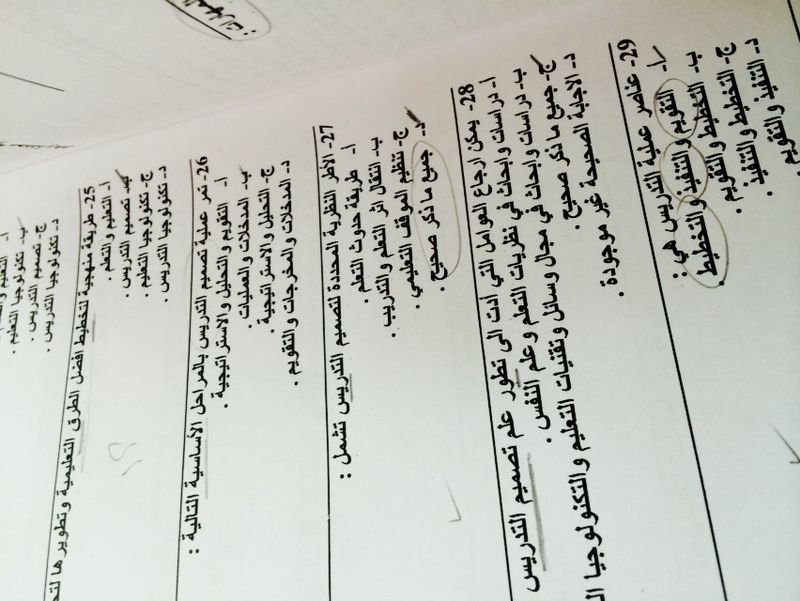 أ- التعليم و
ب- تكنولوجيا التعليم .
ج- تصميم التدريس .
د- تكنولوجيا التدريس .
25- طريقة منهجية لتخطيط افضل الطرق التعليمية وتطويرها لتح
أ- التعليم و التعلم .
ب- تصميم التدريس .
ج- تكنولوجيا التعليم .
د- تكنولوجيا التدريس .
26- تمر عملية تصميم التدريس بالمراحل الأساسية التالية :
أ- التقويم والتحليل والاستراتيجية .
ب- المدخلات والعمليات .
ج- التحليل والاستراتيجية .
د- المدخلات والمخرجات والتقويم .
27- الأطر النظرية المحددة لتصميم التدريس تشمل :
أ- طريقة حدوث التعلم .
ب- انتقال اثر التعلم والتدريب .
ج- تنظيم الموقف التعليمي .
د- جميع ما ذكر صحيح .
28- يمكن ارجاع العوامل التي ادت الى تطور علم تصميم التدريس
أ- دراسات وابحاث في نظريات التعلم وعلم النفس .
ب- دراسات وابحاث في مجال وسائل وتقنيات التعليم والتكنولوجيا
ج- جميع ما ذكر صحيح .
د- الاجابة الصحيحة غير موجودة .
29- عناصر عملية التدريس هي :
أ- التقويم والتنفيذ والتخطيط .
ب- التخطيط والتقويم .
ج- التخطيط والتنفيذ .
د- التنفيذ والتقويم .